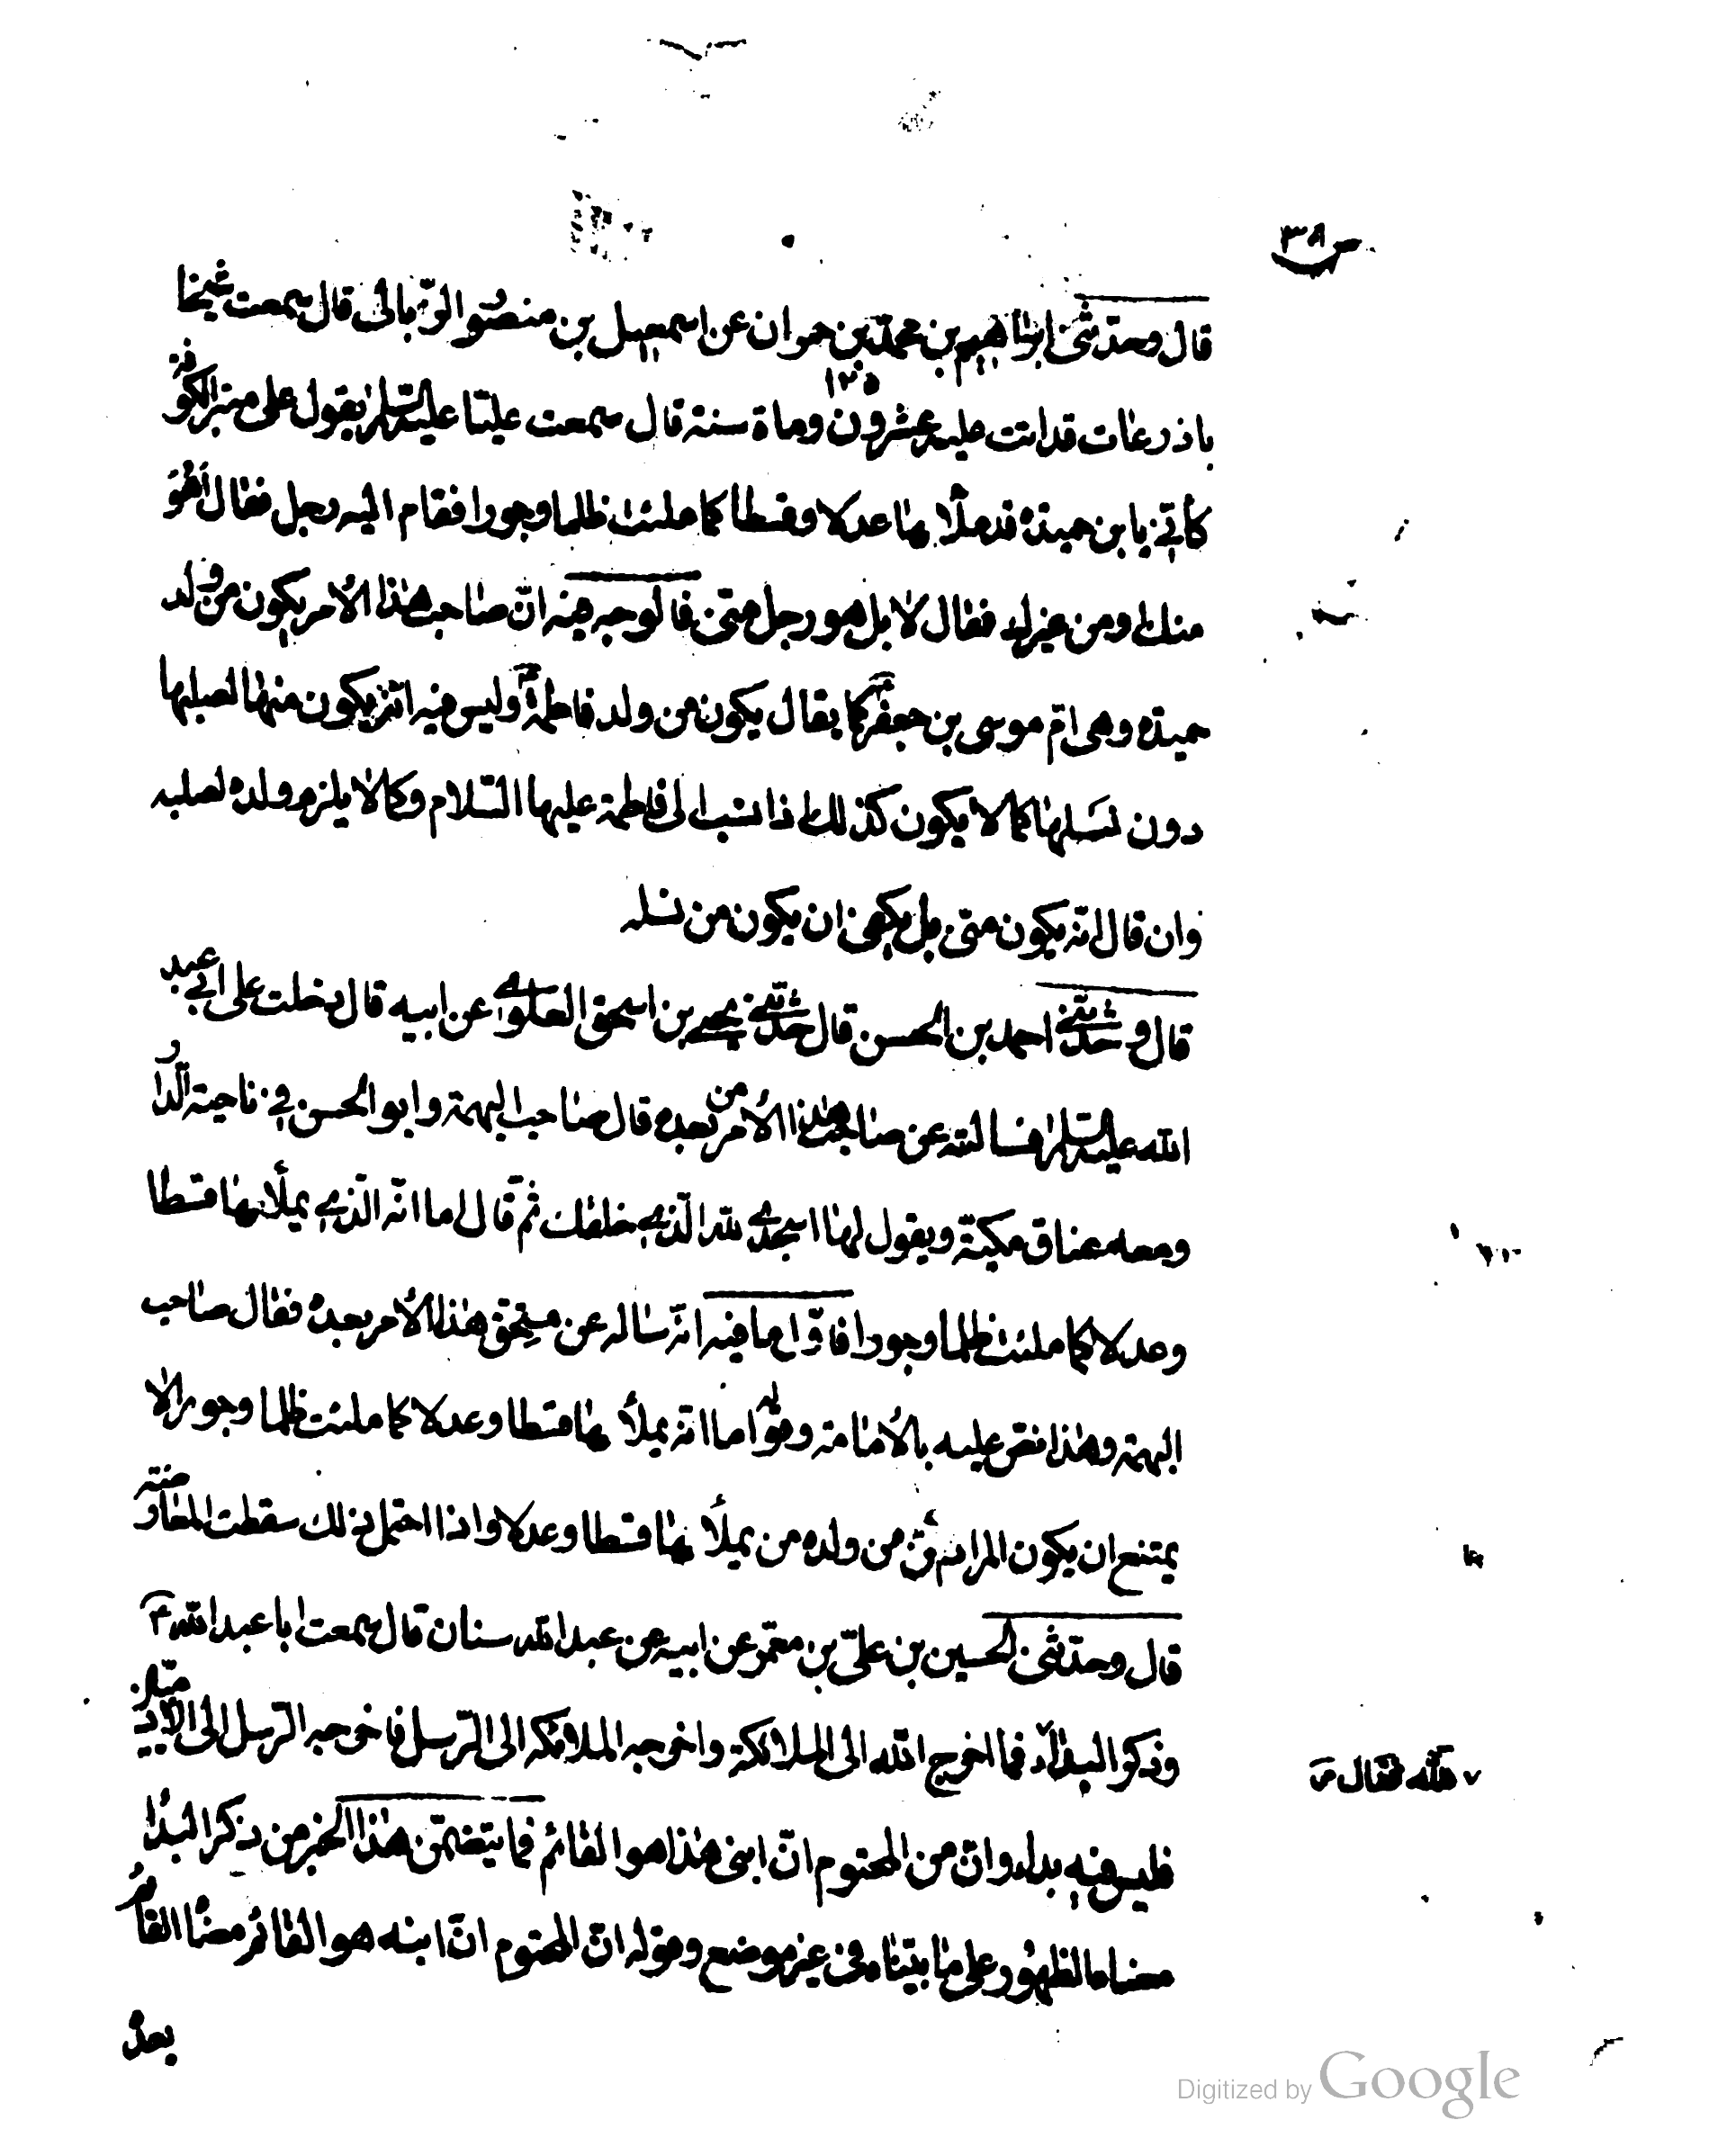 ص ٣٨
قال وحدثنى ابراهيم بن محمد بن حمران عن اسمعيل بن منصور الزبالى قال سمعت شيخا
باذرعات قد اتت عليه عشرون ١٢٥ وماة سنة قال سمعت عليا عليه السلم يقول على منبر الكوفة
كأنى بابن حميدة قد ملأها عدلا وقسطا كما ملئت ظلما وجورا فقام اليه رجل فقال أهو
منك او من غيرك فقال لا بل هو رجل منى فالوجه فيه انّ صاحب هذا الأمر يكون من ولد
حميدة وهى ام موسى بن جعفرؑ كما يقال يكون من ولد فاطمةؑ وليس فيه انه يكون منها لصلبها
دون نسلها كما لا يكون كذلك اذا نسب الى فاطمة عليها السّلام وكما لا يلزم ولده لصلبه
وان قال انّه يكون منى بل يكفى ان يكون من نسله
قال وحدثنى احمد بن الحسن قال حدثنى يحيى بن اسحق العلوى عن ابيه قال دخلت على ابى عبد
الله عليه السلم فسالته عن صاحب هذا الأمر من بعده قال صاحب البهمة وابو الحسن فى ناحية الدار
ومعه عناق مكية ويقول لها اسجدى لله الذى خلقك ثمّ قال اما انّه الّذى يملأها قسطا
وعدلا كما ملئت ظلما وجورا فاوّل ما فيه انّه ساله عن مستحق هذا الأمر بعده فقال صاحب
البهمة وهذا نصّ عليه بالأمامة وقوله اما انّه يملأها قسطا وعدلا كما ملئت ظلما وجورا لا
يمتنع ان يكون المراد انّ من ولده من يملأها قسطا وعدلا واذا احتمل ذلك سقطت المعارضة
قال وحدثنى الحسين بن علىّ بن معمّر عن ابيه عن عبد الله سنان قال سمعت ابا عبد اللهؑ
وذكر البداء فما اخرج الله الى الملائكة واخرجه الملائكه الى الرّسل فاخرجه الرسل الى الآدميّين
لله فقال م
فليس فيه بداء وانّ من المحتوم انّ ابنى هذا هو القائم فما يتضمّن هذا الخبر من ذكر البداء
معناه الظهور على ما بيّناه فى غير موضع وقوله انّ المحتوم انّ ابنه هو القائم معناه القائم
بعده
Digitized by Google